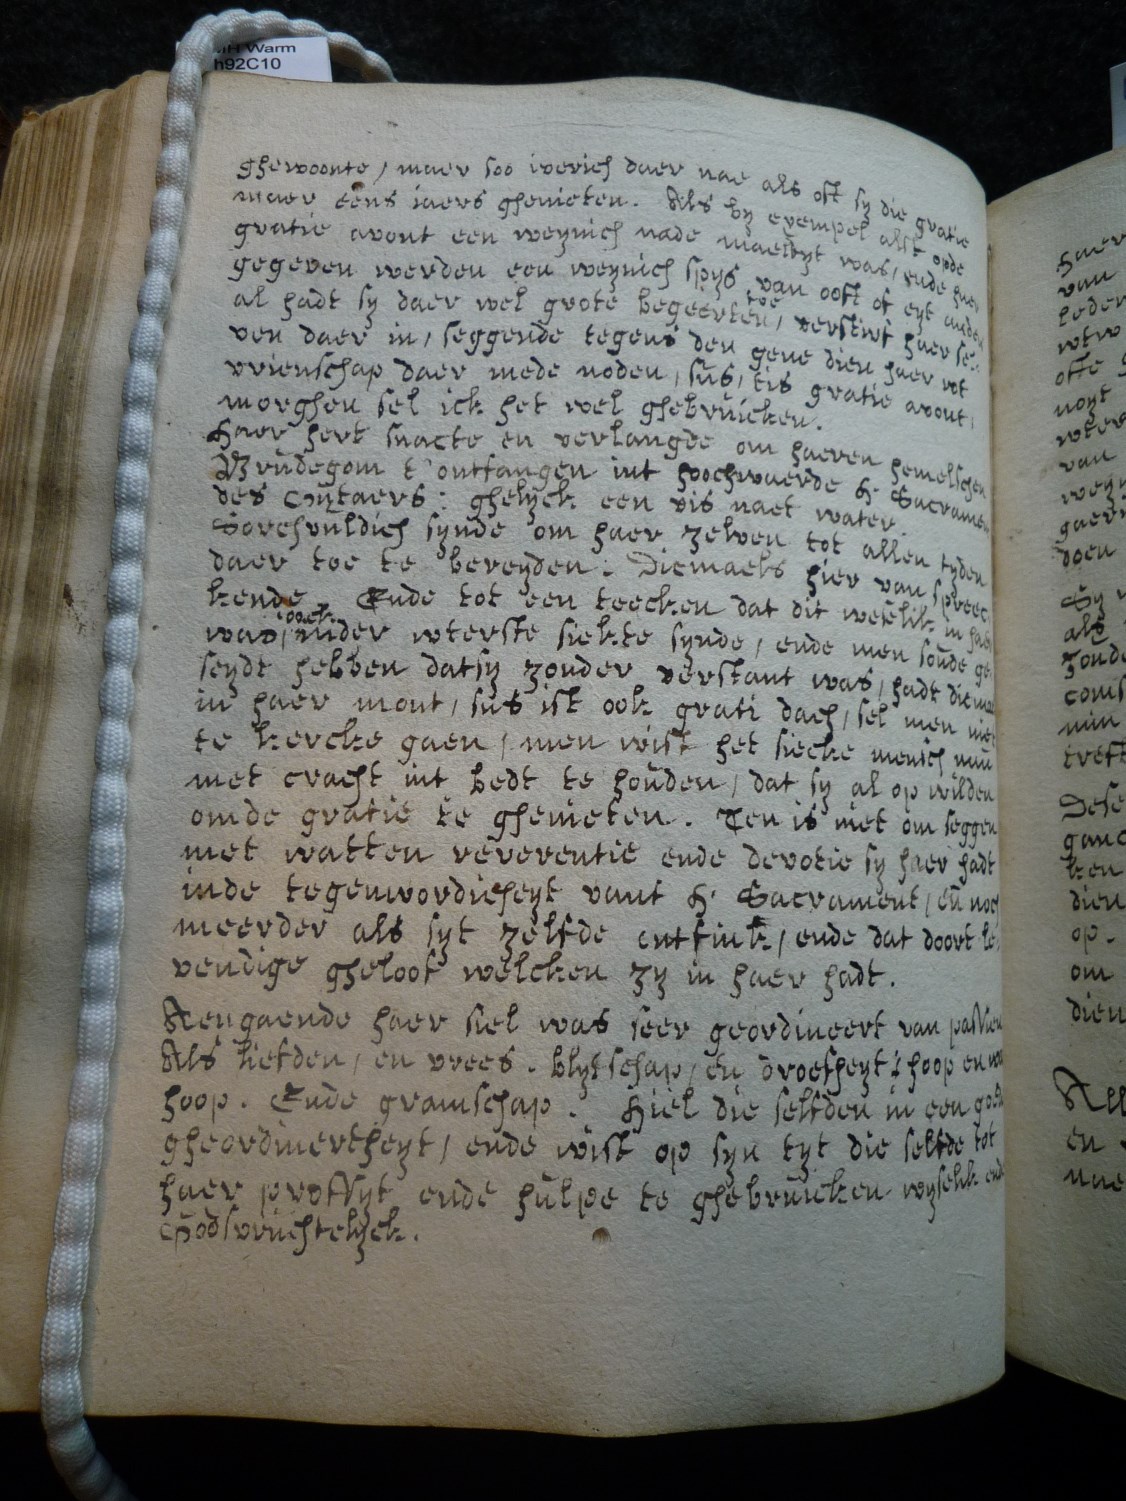 MH Warm
h92C10
ghewoonte / maer soo iverich daer nae als oft sy die gratie
maer eens iaers ghenieten. Als by exempel alst opde
gratie avont een weynich nade maeltyt was / ende haer
gegeven werden een weynich spys van ooft of eyt anders
al hadt sy daer wel grote begeerten toe / verstirf haer sel-
ven daer in / seggende tegens den gene dien haer wt
vrienschap daer mede noden / sus / tis gratie avont /
morghen sel ick het wel ghebruicken.
Haer hert snacte en verlangde om haeren hemelschen
Brudegom t'ontfangen int hoochwaerde H. Sacrament
des Outaers: ghelyck een vis naet water.
Sorchvuldich synde om haer zelven tot allen tyden
daer toe te bereyden. Dicmaels hier van spreec
kende. Ende tot een teecken dat dit wetelik in haer
was / oock inder wterste siekte synde / ende men soude ge
seydt hebben datsy zonder verstant was / hadt dicmael
in haer mont / sus ist ook grati dach / sel men niet
te kercke gaen / men wist het siecke mensch nau
met cracht int bedt te houden / dat sy al op wilden
omde gratie te ghenieten. Ten is niet om seggen
met watten reverentie ende devotie sy haer hadt
inde tegenwordicheyt vant H. Sacrament / en noch
meerder als syt zelfde ontfink / ende dat doort le-
vendige gheloof welcken zy in haer hadt.
Aengaende haer siel was seer geordineert van passien
Als liefden / en vrees. blytschap / en droefheyt / hoop en wan
hoop. Ende gramschap. Hiel die selfden in een goede
gheordinertheyt / ende wist op syn tyt die selfde tot
haer proffyt ende hulpe te ghebruicken wyselik ende
Godsvruchtelyck.
haer
van
leden
wtw
ofte
noyt
wter
van
weyn
gaern
doen
Sy
als
zonde
coms
min
treft
Dese
ganc
ken
dien
op.
om
dien
All
en
nae